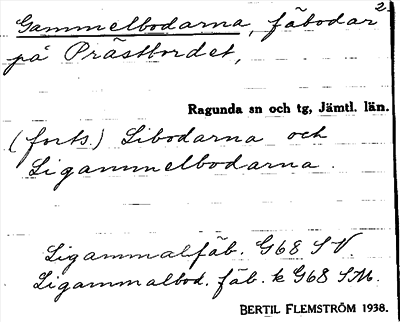 2.
Gammelbodarna, fäbodar
på Prästbordet,
Ragunda sn och tg, Jämtl. län.
(forts.) Libodarna och
Ligammelbodarna.
Ligammalfäb. G68 SV.
Ligammalbod. fäb. k G68 SM.
BERTIL FLEMSTRÖM 1938.